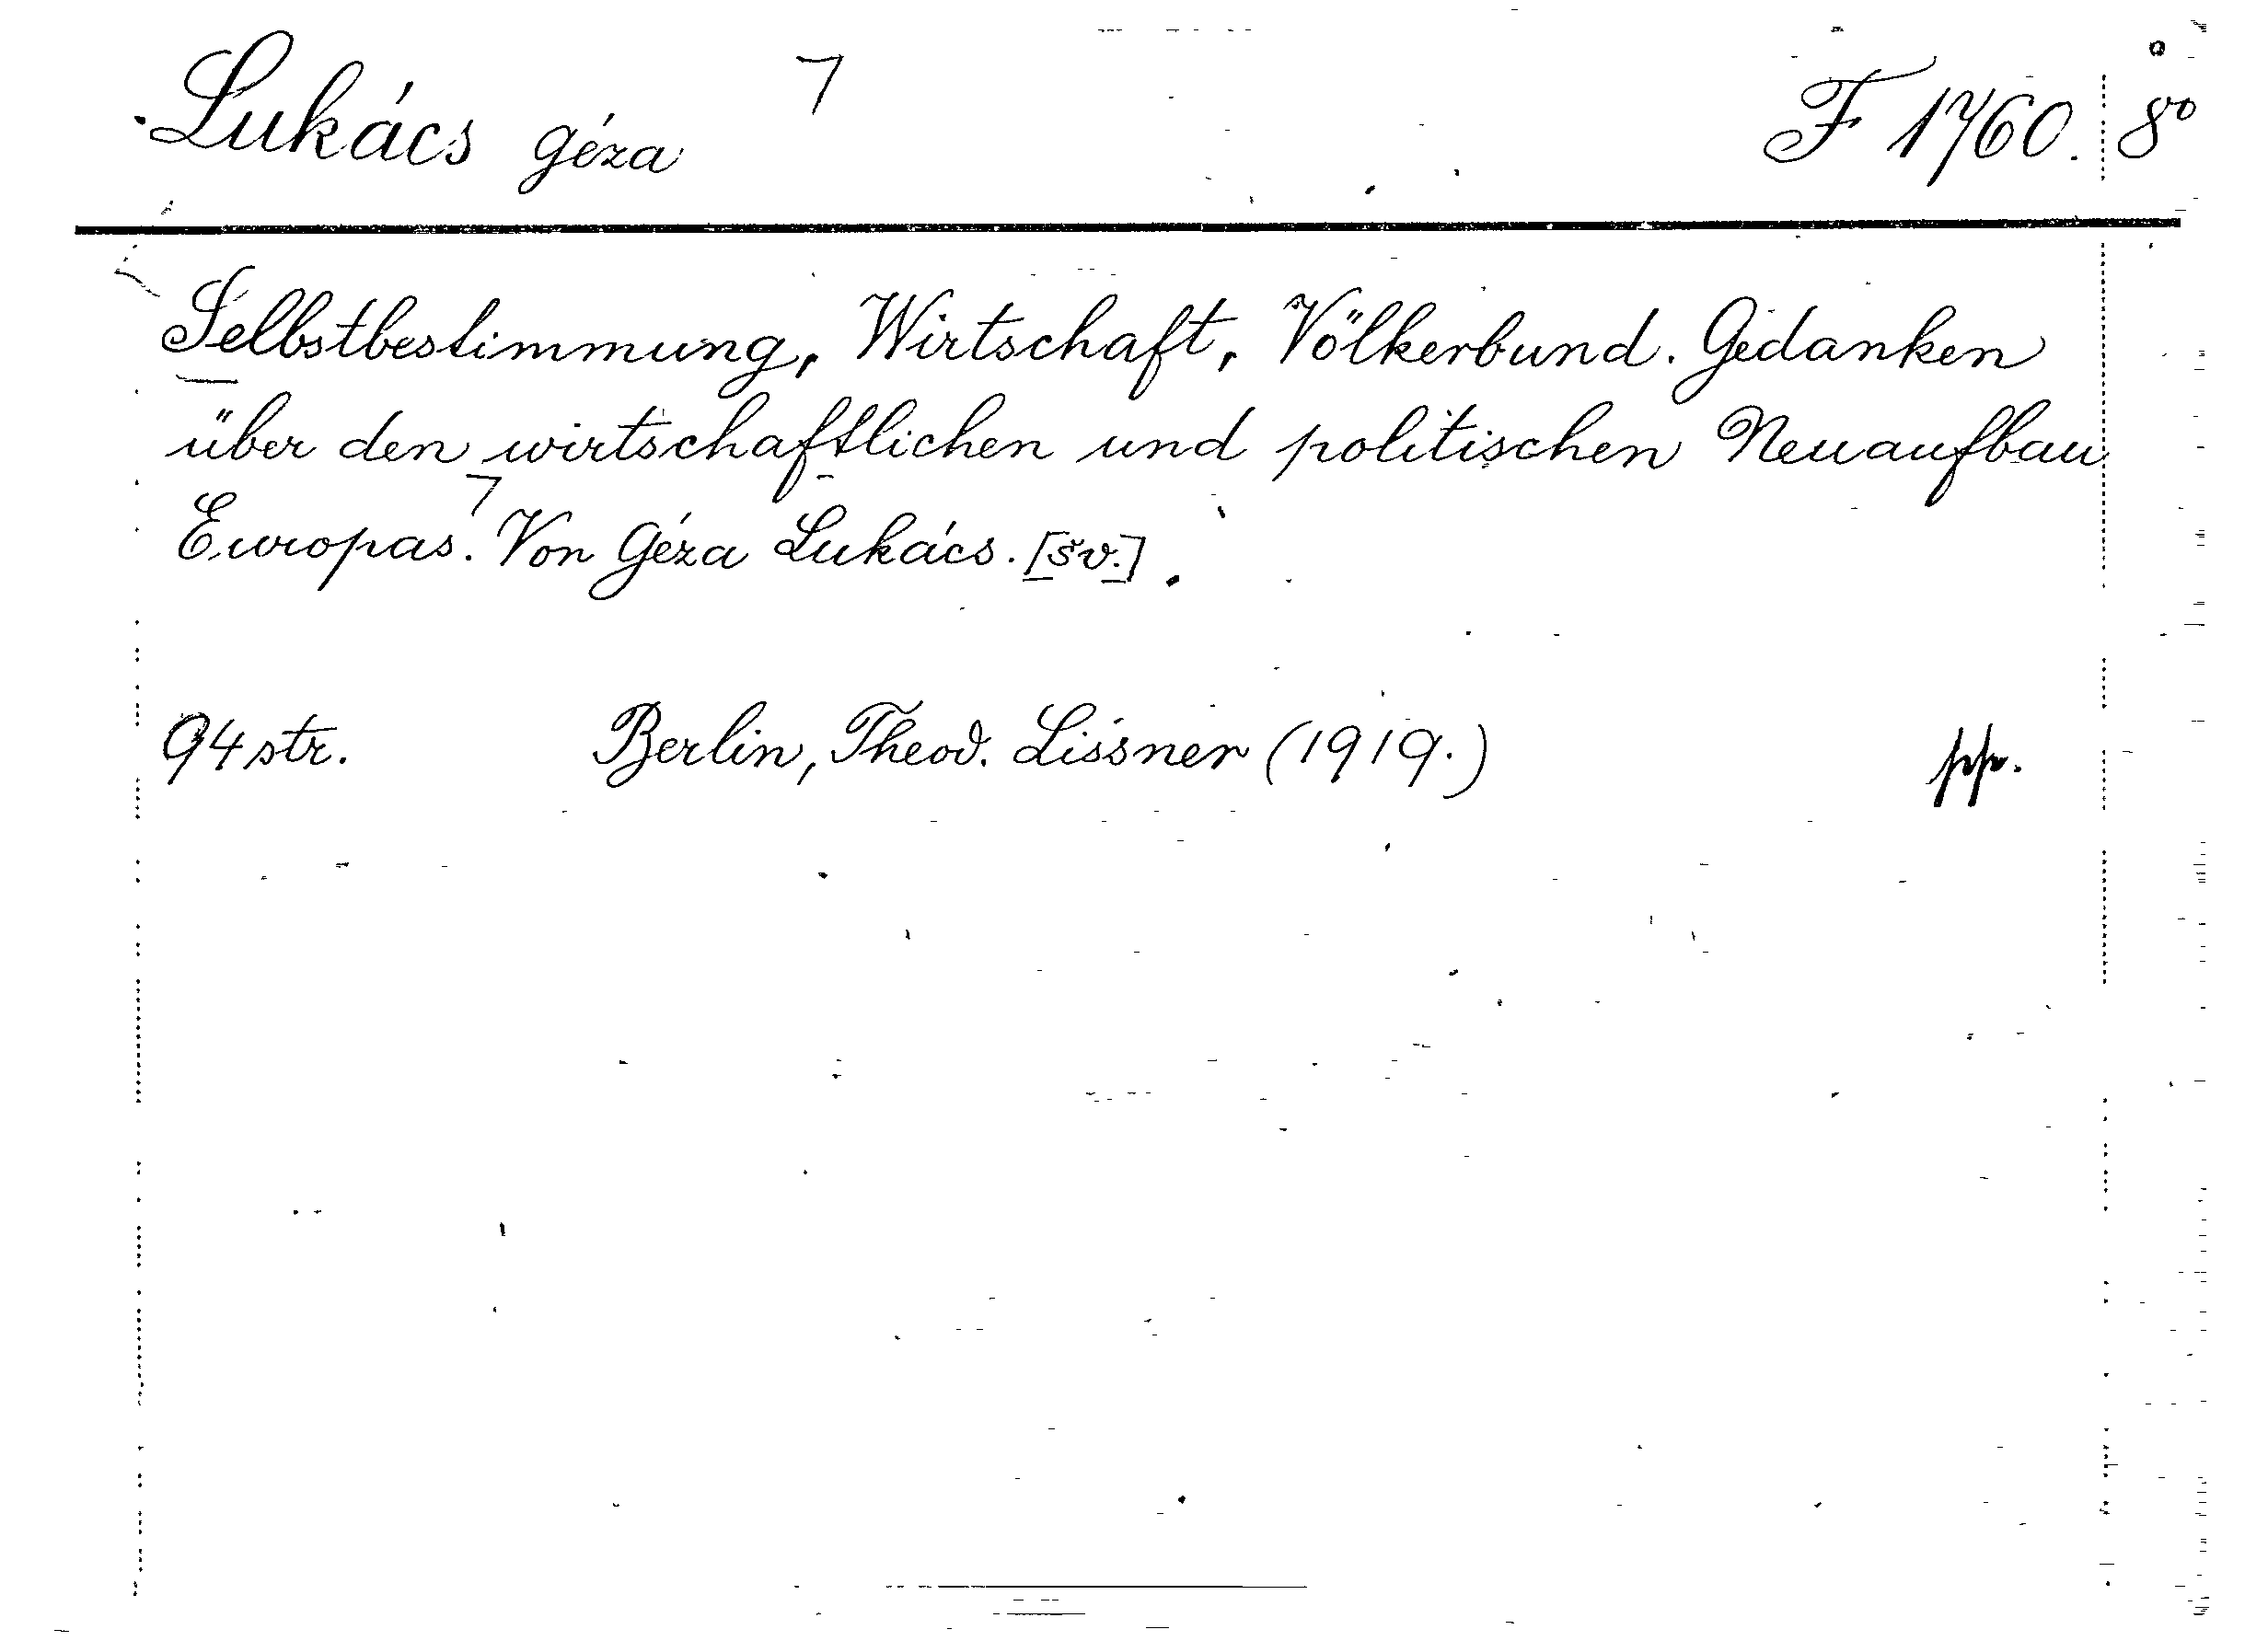 Lukács Géza ⌝ F 1760. 8°
Selbstbestimmung, Wirtschaft, Völkerbund. Gedanken
über den wirtschaftlichen und politischen Neuaufbau
Europas.⌝ Von Géza Lukács. [šv.]
94 str. Berlin, Theod. Lissner (1919.) ppr.